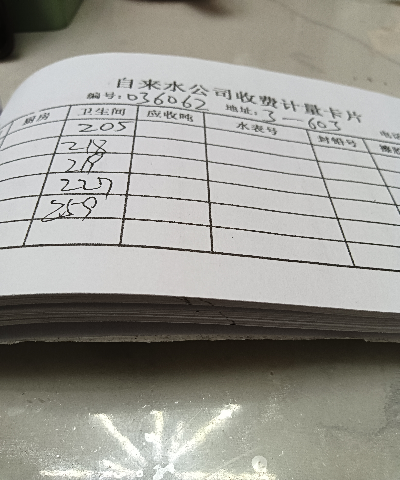 自来水公司收费计量卡片
编号:036062 地址:3-603
厨房 卫生间 应收吨 水表号 封铅号
205
218
219
227
259